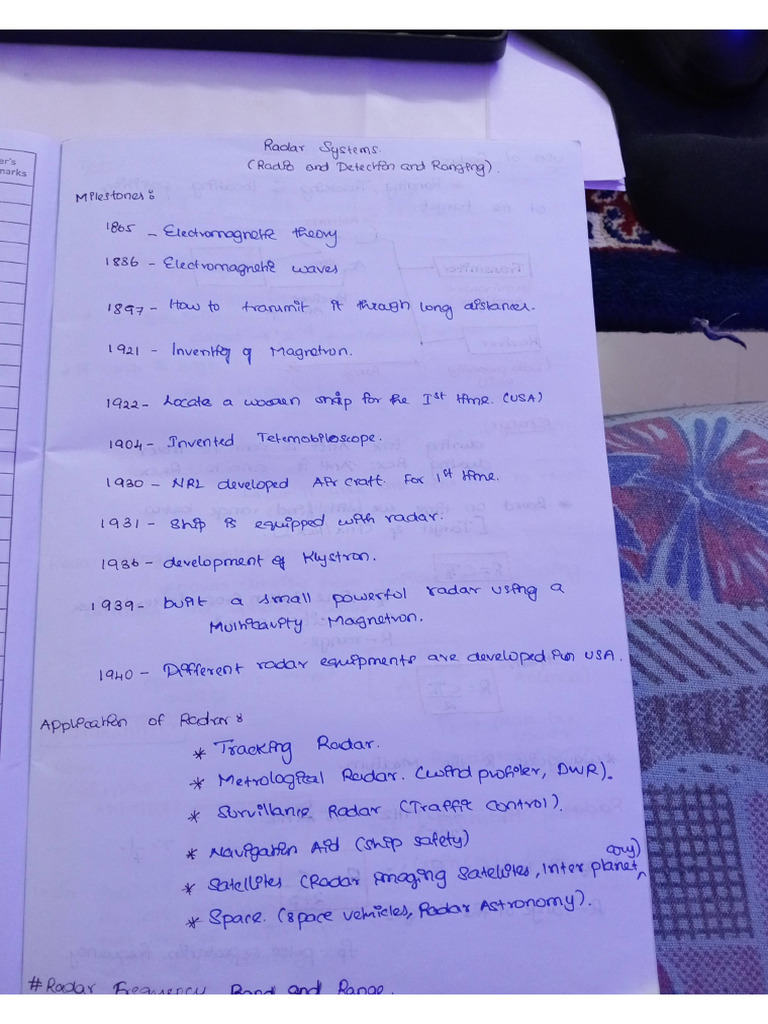 er's
marks
Radar Systems.
(Radio and Detection and Ranging).
Milestones:
1865 - Electromagnetic theory
1886 - Electromagnetic waves
1897 - How to transmit it through long distances.
1921 - Invention of Magnetron.
1922 - Locate a wooden ship for the Ist time. (USA)
1904 - Invented Telemobiloscope.
1930 - NRL developed Air craft. For 1st time.
1931 - Ship is equipped with radar.
1936 - development of Klystron.
1939 - built a small powerful radar using a
Multicavity Magnetron.
1940 - Different radar equipments are developed in USA.
Application of Radar:
* Tracking Radar.
* Metrological Radar. (wind profiler, DWR).
* Survillance Radar (Traffic Control).
* Navigation Aid (Ship safety)
* Satellites (Radar imaging Satellites, Inter planetary)
* Space. (space vehicles, Radar Astronomy).
#Radar Frequency Band and Range.